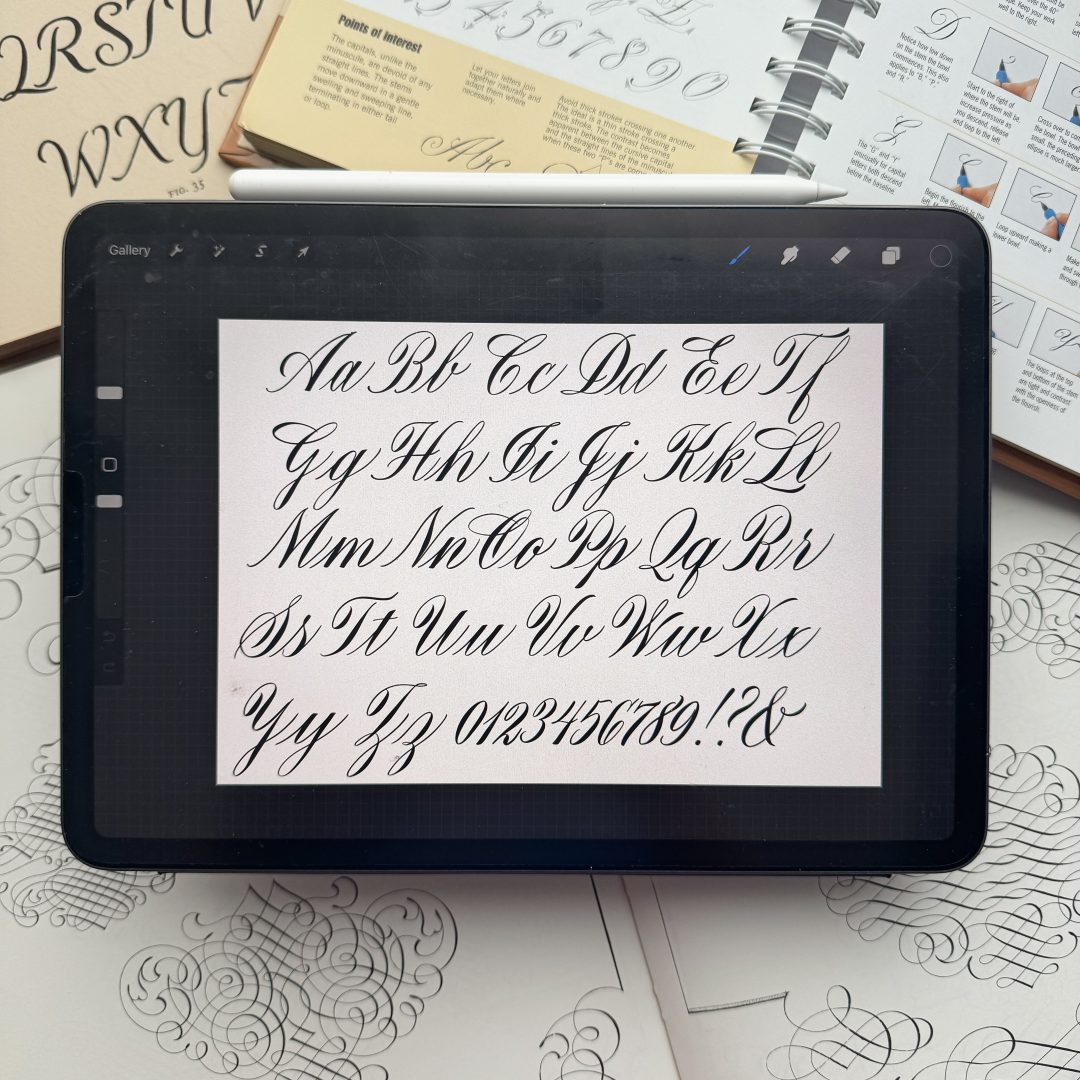 QRSTU
WXY
FIG. 35
Points of Interest
The capitals, unlike the
minuscule, are devoid of any
straight lines. The stems
move downward in a gentle
swelling and sweeping line,
terminating in either tail
or loop.
Let your letters join
together naturally and
adapt them where
necessary.
Avoid thick strokes crossing one another
The ideal is a thin stroke crossing a
thick stroke. The contrast becomes
apparent between the curvne capital
and the straight lines of the minuscule
when these two
4567890
Abc
well to the right.
D
Notice how low down
on the stem the bowl
commences. This also
applies to "B" "P"
and "R"
Start to the right of
where the stem will be,
increase pressure as
you descend, release
and loop to the left.
Cross over to
the bowl. The
small, the preceding
ellipse is much larger
G
The "G" and "Y"
unusually for capital
letters both descend
below the baseline.
Begin the flourish to the
left.
Loop upward making a
lower bowl.
Make
and
through
The loops at the top
and bottom of the stem
are light and contrast
with the openness of
the flourish.
Gallery
Aa Bb Cc Dd Ee Ff
Gg Hh Ii Jj Kk Ll
Mm Nn Oo Pp Qq Rr
Ss Tt Uu Vv Ww Xx
Yy Zz 0123456789!?&